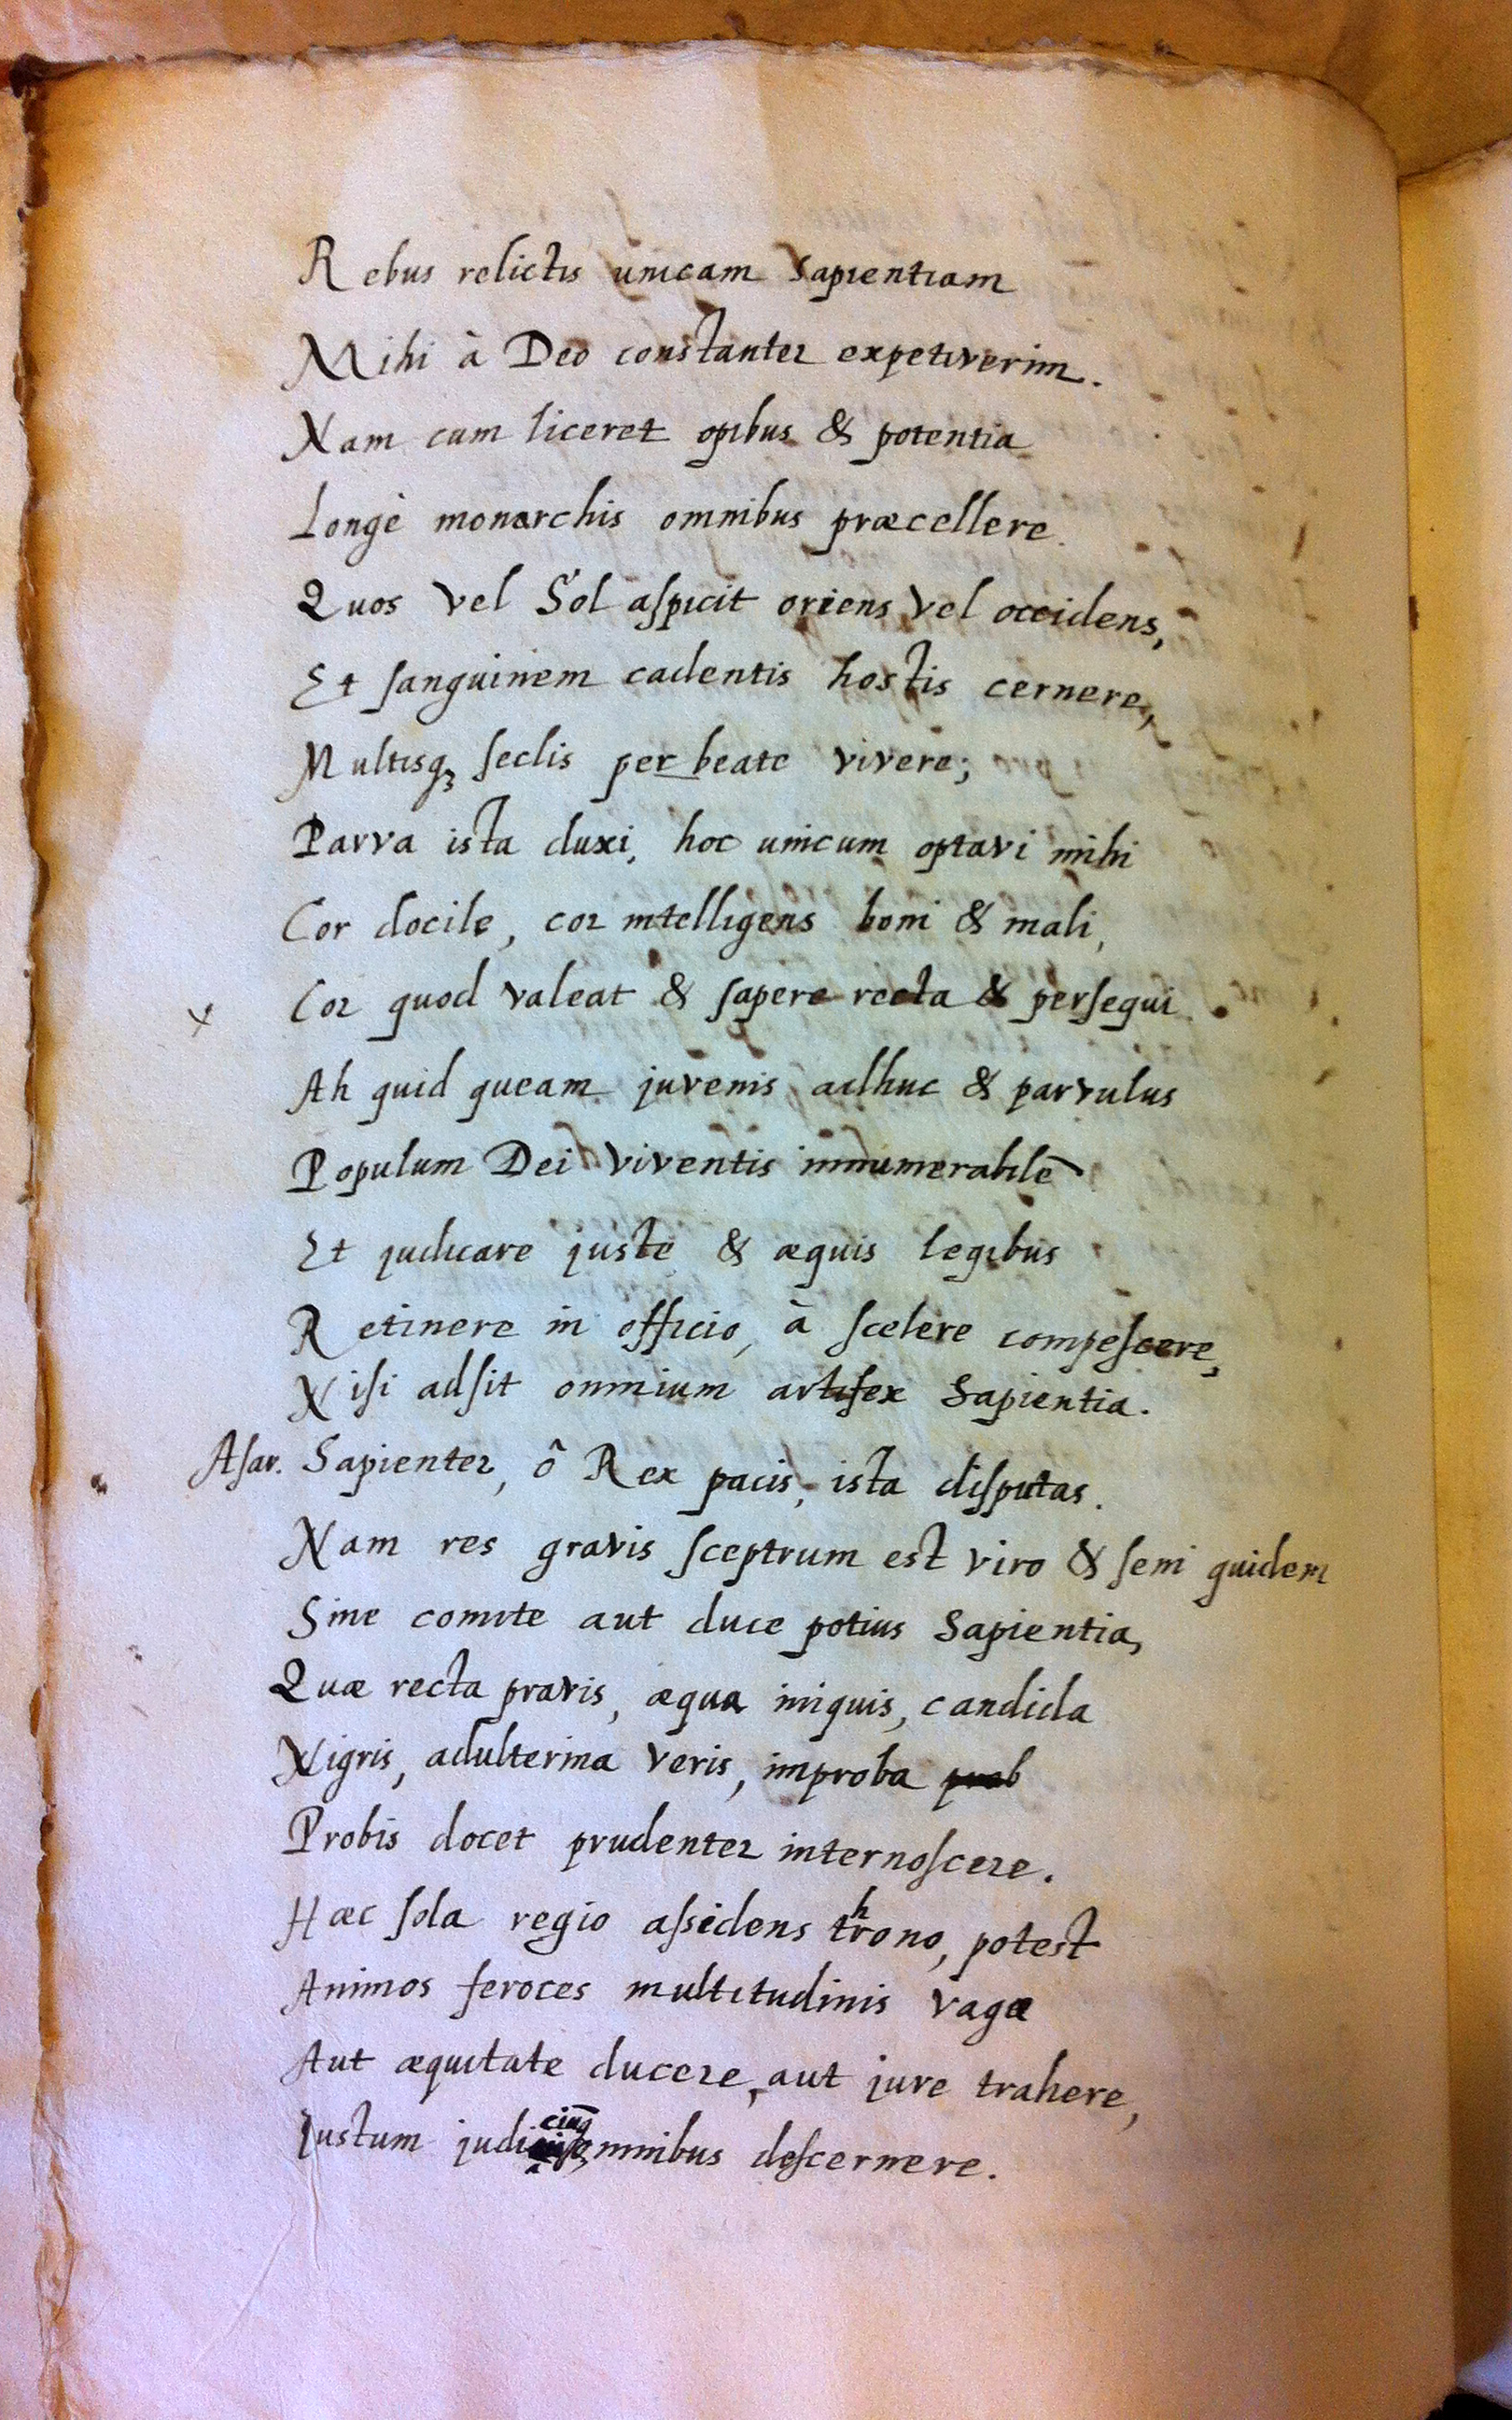 Rebus relictis unicam Sapientiam
Mihi à Deo constanter expetiverim.
Nam cum liceret opibus & potentia
Longè monarchis omnibus præcellere.
Quos vel Sol aſpicit oriens vel occidens,
Et ſanguinem cadentis hostis cernere,
Multisqꝫ ſeclis perbeate vivere;
Parva ista duxi, hoc unicum optavi mihi
Cor docile, cor intelligens boni & mali,
x Cor quod valeat & ſapere recta & perſequi.
Ah quid queam juvenis adhuc & parvulus
Populum Dei viventis innumerabilē
Et judicare juste & æquis legibus
Retinere in officio, à ſcelere compeſcere,
Niſi adſit omnium artifex Sapientia.
Aſar. Sapienter, ô Rex pacis, ista diſputas.
Nam res gravis ſceptrum est viro & ſeni quidem
Sine comite aut duce potius Sapientia,
Quæ recta pravis, æqua iniquis, candida
Nigris, adulterina veris, improba prob
Probis docet prudenter internoſcere.
Hæc ſola regio aſsidens throno, potest
Animos feroces multitudinis vagæ
Aut æquitate ducere, aut jure trahere,
Iustum judiciūq omnibus deſcernere.